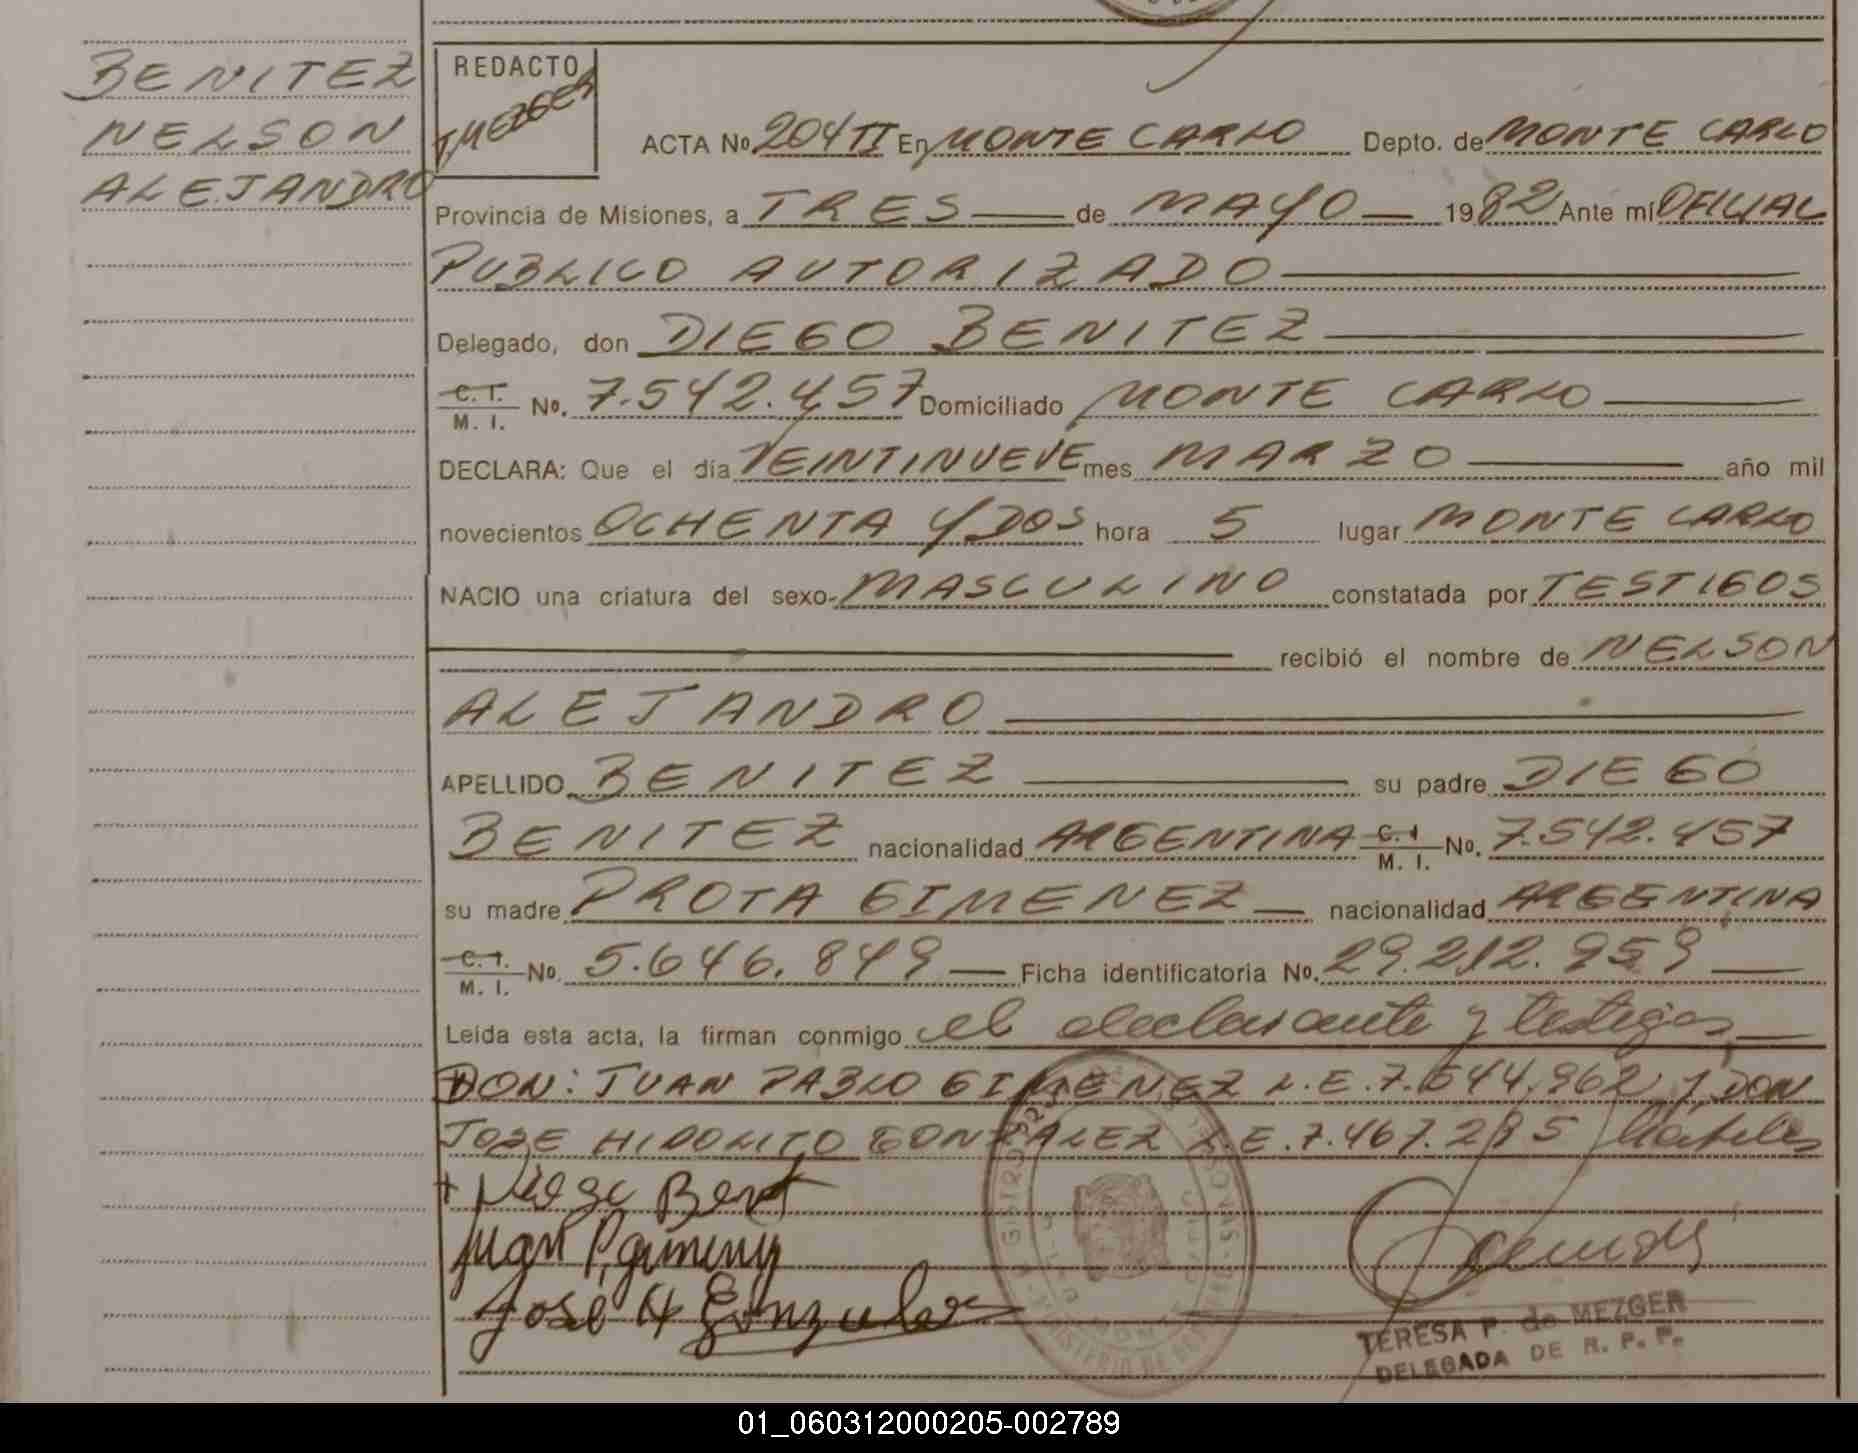 BENITEZ
NELSON
ALEJANDRO
REDACTO
T.MEZGER
ACTA No 204 TII En MONTE CARLO Depto. de MONTE CARLO
Provincia de Misiones, a TRES de MAYO 1982 Ante mí OFICIAL
PUBLICO AUTORIZADO
Delegado, don DIEGO BENITEZ
C. I. M. I. No. 7.542.457 Domiciliado MONTE CARLO
DECLARA: Que el día VEINTINUEVE mes MARZO año mil
novecientos OCHENTA Y DOS hora 5 lugar MONTE CARLO
NACIO una criatura del sexo MASCULINO constatada por TESTIGOS
recibió el nombre de NELSON
ALEJANDRO
APELLIDO BENITEZ su padre DIEGO
BENITEZ nacionalidad ARGENTINA C. I M. I. No. 7.542.457
su madre PROTA GIMENEZ nacionalidad ARGENTINA
C. I. M. I. No. 5.646.849 Ficha identificatoria No. 29.212.959
Leida esta acta, la firman conmigo el declarante y testigos
DON: JUAN PABLO GIMENEZ L.E.7.644.962 y DON
JOSE HIPOLITO GONZALEZ L.E.7.467.285
Diego Benit
Juan P. gimenez
Jose H Gonzales
TERESA P. de MEZGER
DELEGADA DE R. P. P.
01_060312000205-002789